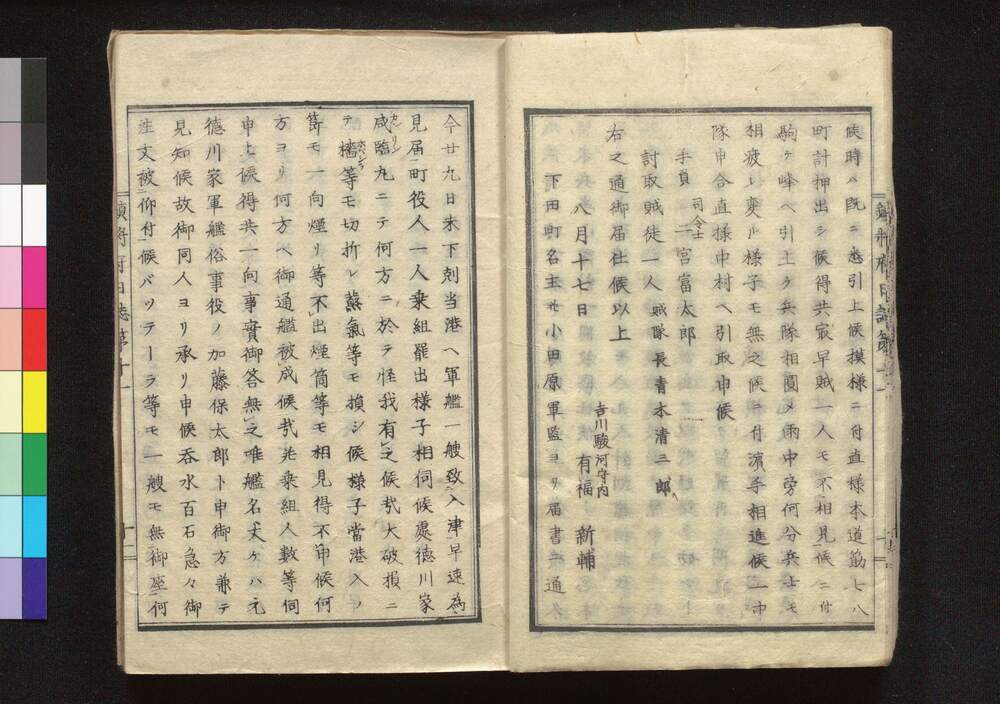 候時ハ既ニ悉引上候摸様ニ付直様本道筋七八
町計押出シ候得共最早賊一人モ不相見候ニ付
駒ケ峰ヘ引上ケ兵隊相圓メ雨中旁何分兵士モ
相疲レ変ル様子モ無之候ニ付濱手相進候一中
隊申合直様中村ヘ引取申候
手負 司令士 二宮富太郎
討取賊徒一人 賊隊長青木清三郎
右之通御届仕候以上
八月十七日 吉川駿河守内 有福 新輔
下田町名主ゟ小田原軍監ヨリ届書一通
鎮将府日誌第十一
今廿九日未下刻当港ヘ軍艦一艘致入津早速為
見届町役人一人乗組罷出様子相伺候處徳川家
咸臨丸ニテ何方ニ於テ怪我有之候哉大破損ニ
カンリン
テ檣等モ切折レ蒸氣等モ損シ候様子當港入ノ
ホバシラ
節モ一向煙リ等不出煙筒等モ相見得不申候何
方ヨリ何方ヘ御通艦被成候哉并乗組人数等伺
申上候得共一向事實御答無之唯艦名丈ケハ元
徳川家軍艦俗事役ノ加藤保太郎ト申御方兼テ
見知候故御同人ヨリ承リ申候呑水百石急々御
注文被仰付候バツテーラ等モ一艘モ無御座何
鎮将府日誌第十一